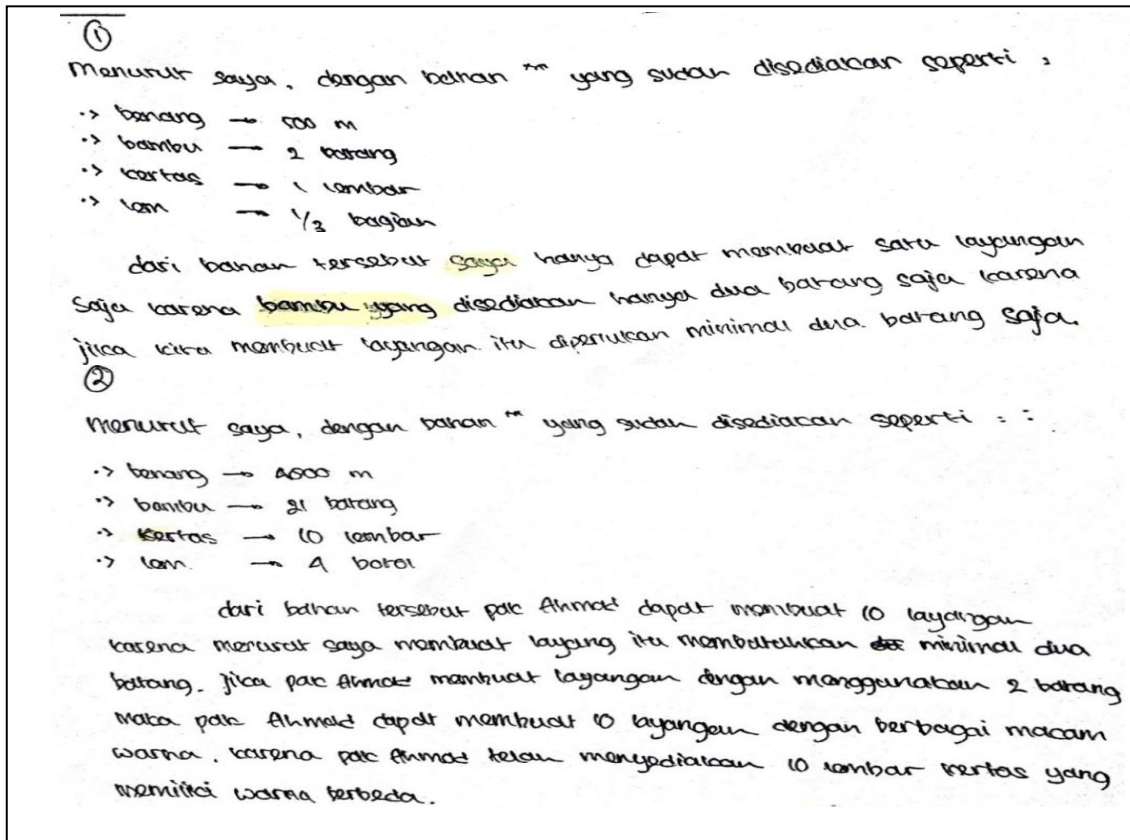 ①
Menurut saya, dengan bahan " yang sudah disediakan seperti :
•> benang → 500 m
•> bambu → 2 batang
•> kertas → 1 lembar
•> lem → 1/3 bagian
dari bahan tersebut saya hanya dapat membuat satu layangan
saja karena bambu yang disediakan hanya dua batang saja karena
jika kita membuat layangan itu diperlukan minimal dua batang saja.
②
Menurut saya, dengan bahan " yang sudah disediakan seperti : :
•> benang → 4500 m
•> bambu → 21 batang
•> kertas → 10 lembar
•> lem → 4 botol
dari bahan tersebut pak Ahmad dapat membuat 10 layangan
karena menurut saya membuat layang itu membutuhkan minimal dua
batang. jika pak Ahmad membuat layangan dengan menggunakan 2 batang
maka pak Ahmad dapat membuat 10 layangan dengan berbagai macam
warna. karena pak Ahmad telah menyediakan 10 lembar kertas yang
memiliki warna berbeda.